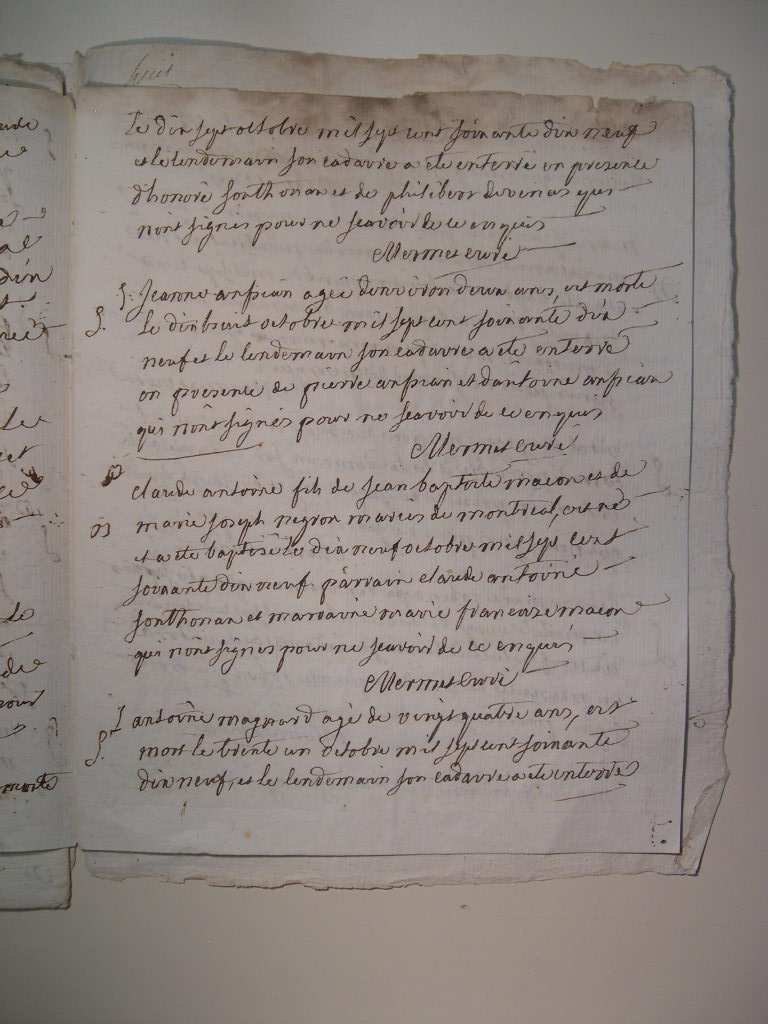 huit
Le dix sept octobre mil sept cent soixante dix neuf
et le lendemain son cadavre a ete enterré en presence
d'honoré sonthonax et de philibert qui
n'ont signés pour ne scavoir de ce enquis
Mermet curé
§: Jeanne anpian ageé d'environ deux ans, est morte
§. Le dixhuit octobre mil sept cent soixante dix
neuf et le lendemain son cadavre a ete enterré
en presence de pierre anpian et d'antoine anpian
qui n'ont signés pour ne scavoir de ce enquis
Mermet curé
claude antoine fils de jean baptiste maçon et de
marie joseph negron mariés de montreal, est né
et a ete baptisé le dix neuf octobre mil sept cent
soixante dix neuf parrain claude antoine
sonthonax et marraine marie françoize maçon
qui n'ont signés pour ne scavoir de ce enquis
Mermet curé
antoine magnard agé de vingt quatre ans, est
§. mort le trente un octobre mil sept cent soixante
dix neuf, et le lendemain son cadavre a ete enterré